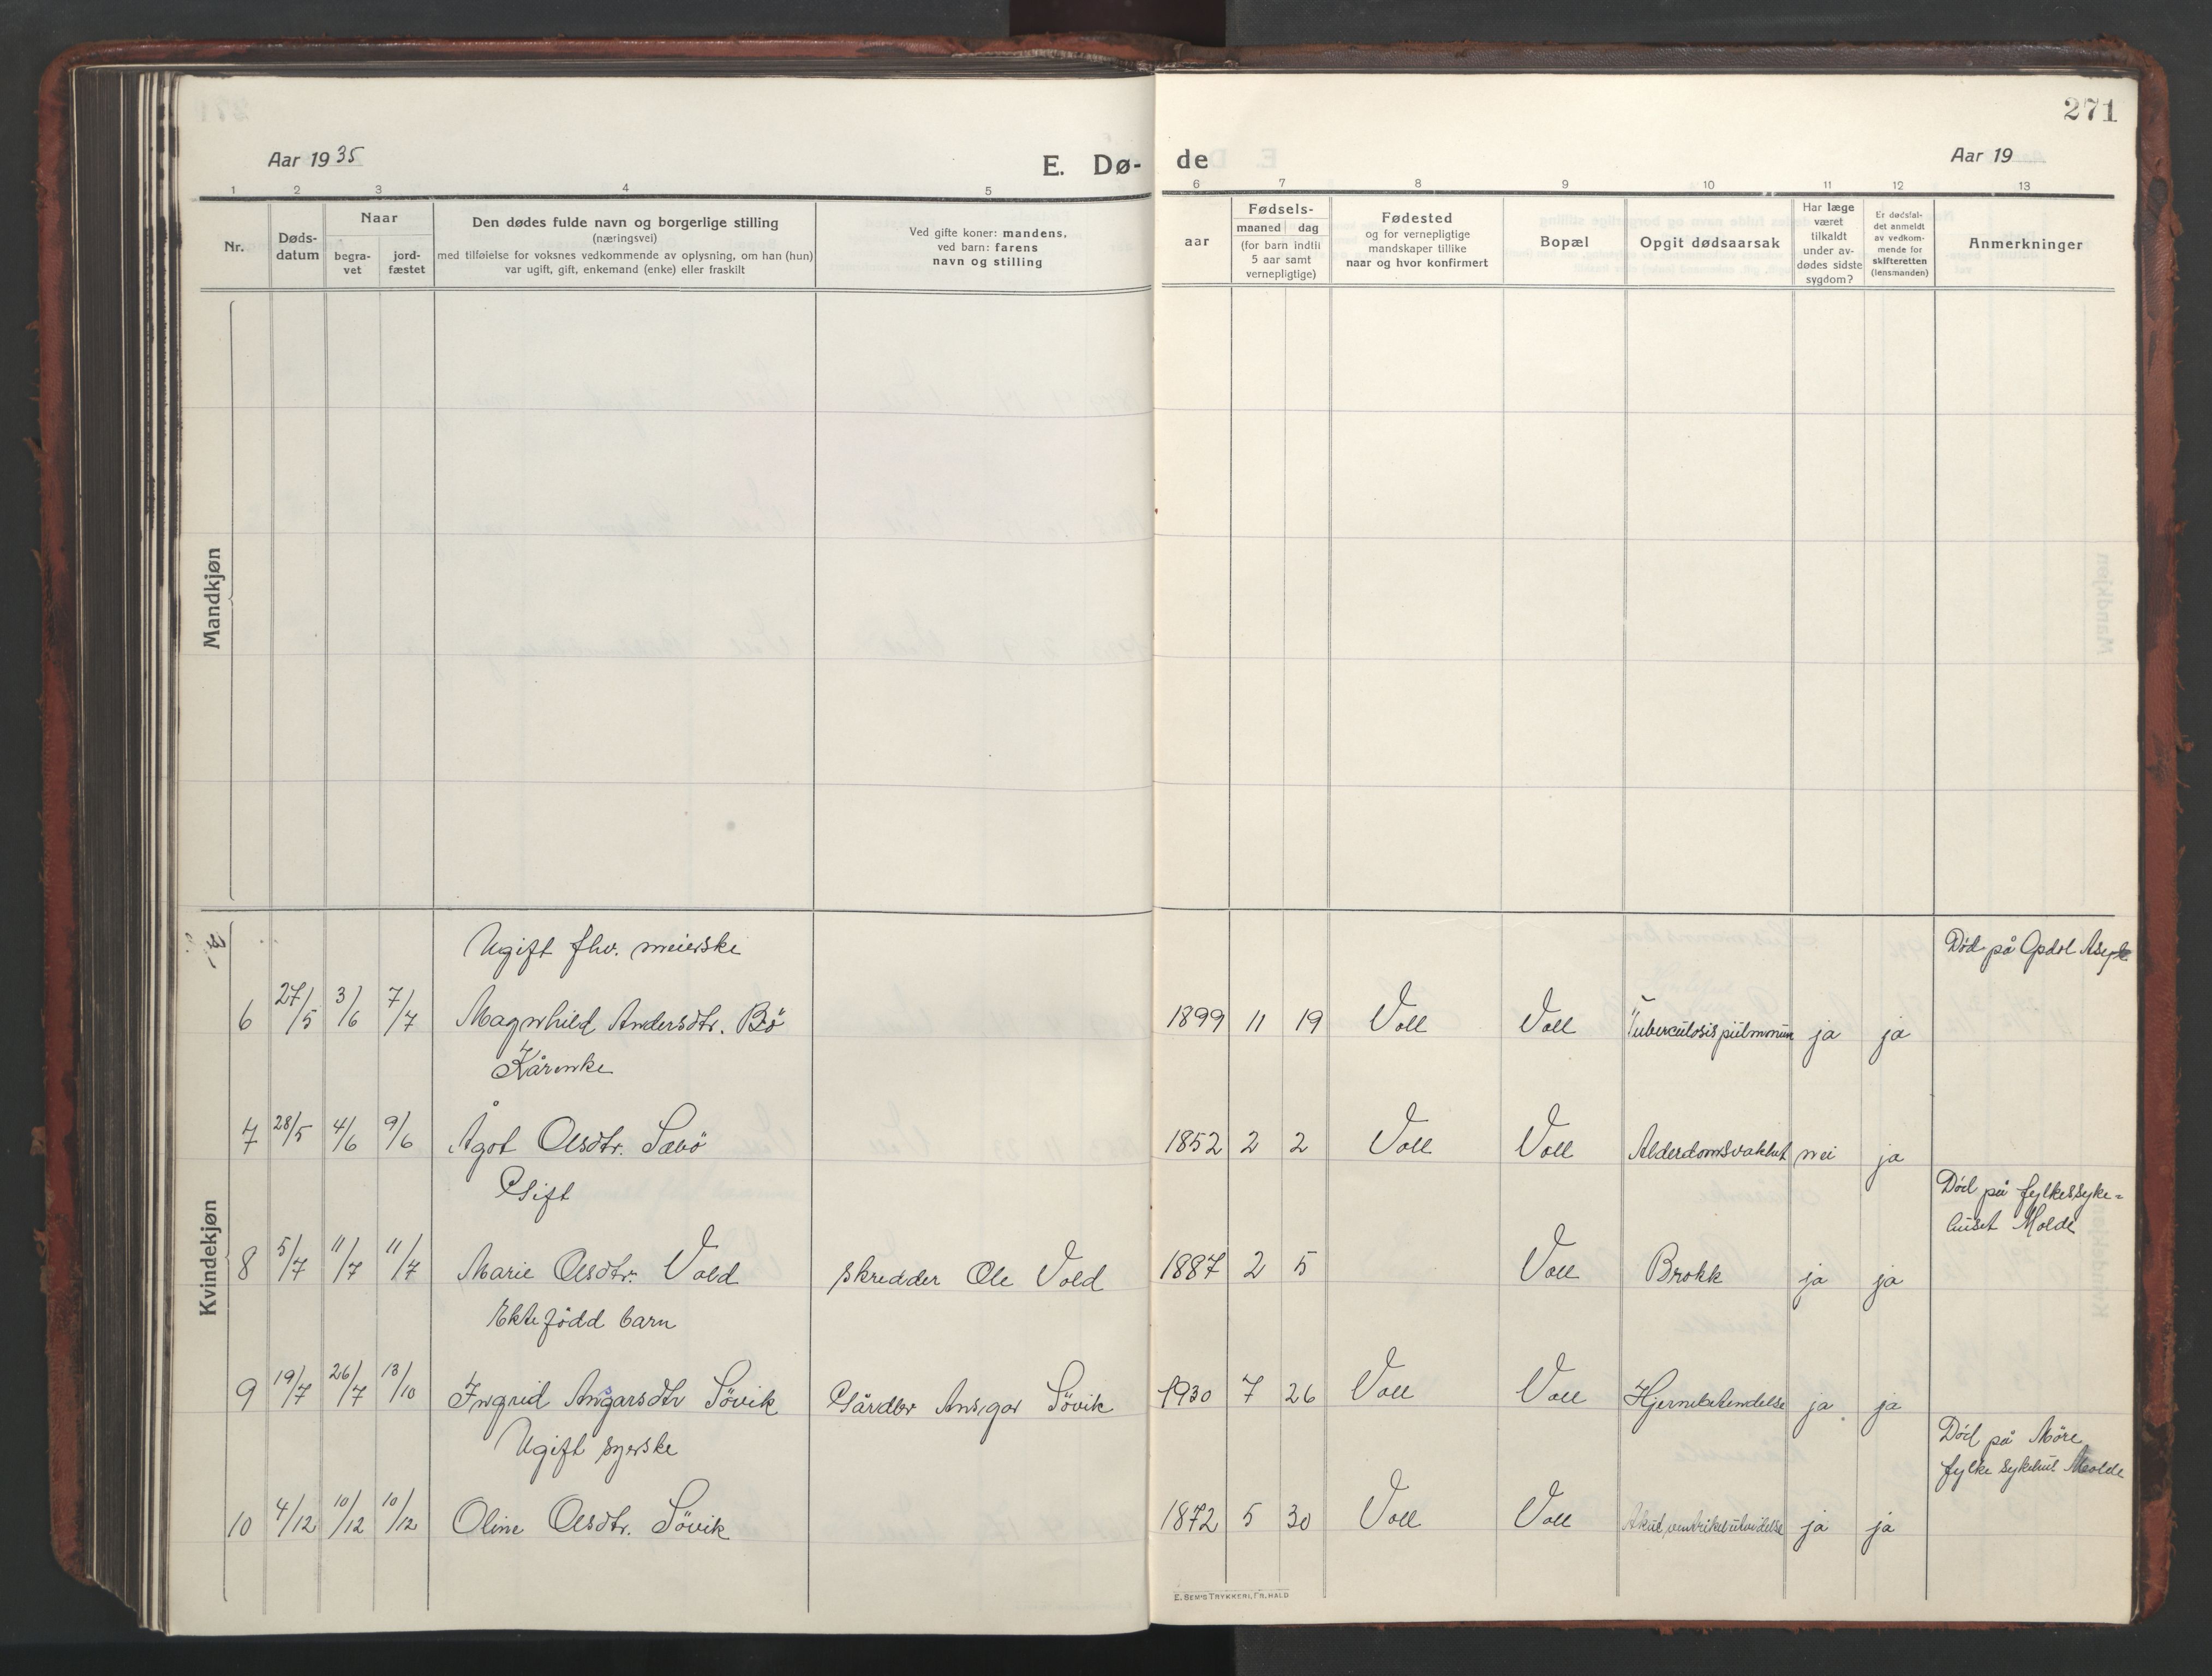 271
Aar 1935
E. Dø-
de
Aar 19
1 2 3 4 5 6 7 8 9 10 11 12 13
Nr.
Døds-
datum
Naar
begra-
vet
jord-
fæstet
Den dødes fulde navn og borgerlige stilling
(næringsvei)
med tilføielse for voksnes vedkommende av oplysning, om han (hun)
var ugift, gift, enkemand (enke) eller fraskilt
Ved gifte koner: mandens,
ved barn: farens
navn og stilling
aar
Fødsels-
maaned dag
(for barn indtil
5 aar samt
vernepligtige)
Fødested
og for vernepligtige
mandskaper tillike
naar og hvor konfirmert
Bopæl
Opgit dødsaarsak
Har læge
været
tilkaldt
under av-
dødes sidste
sygdom?
Er dødsfal-
det anmeldt
av vedkom-
mende for
skifteretten
(lensmanden)
Anmerkninger
Mandkjøn
Kvindekjøn
Ugift fhv. meierske Död på Opdöl Asyl
6 27/5 3/6 7/7 Magnhild Andersdtr. Bö 1899 11 19 Voll Voll Tuberculosis pulmonum ja ja
Kårenke
7 28/5 4/6 9/6 Ågot Olsdtr. Sævö 1852 2 2 Voll Voll Alderdomsvakhet nei ja
Gift Död på fylkessyke-
huset Molde
8 5/7 11/7 11/7 Marie Olsdtr. Vold skredder Ole Vold 1887 2 5 Voll Brokk ja ja
Ektefödd barn
9 19/7 26/7 13/10 Ingrid Ansgarsdtr Sövik Gårdbr Ansgar Sövik 1930 7 26 Voll Voll Hjernebetendelse ja ja
Ugift syerske Död på Möre
fylke sykehus Molde
10 4/12 10/12 10/12 Oline Olsdtr. Sövik 1872 5 30 Voll Voll Akut ventrikelutvidelse ja ja
E. SEM'S TRYKKERI, FR. HALD